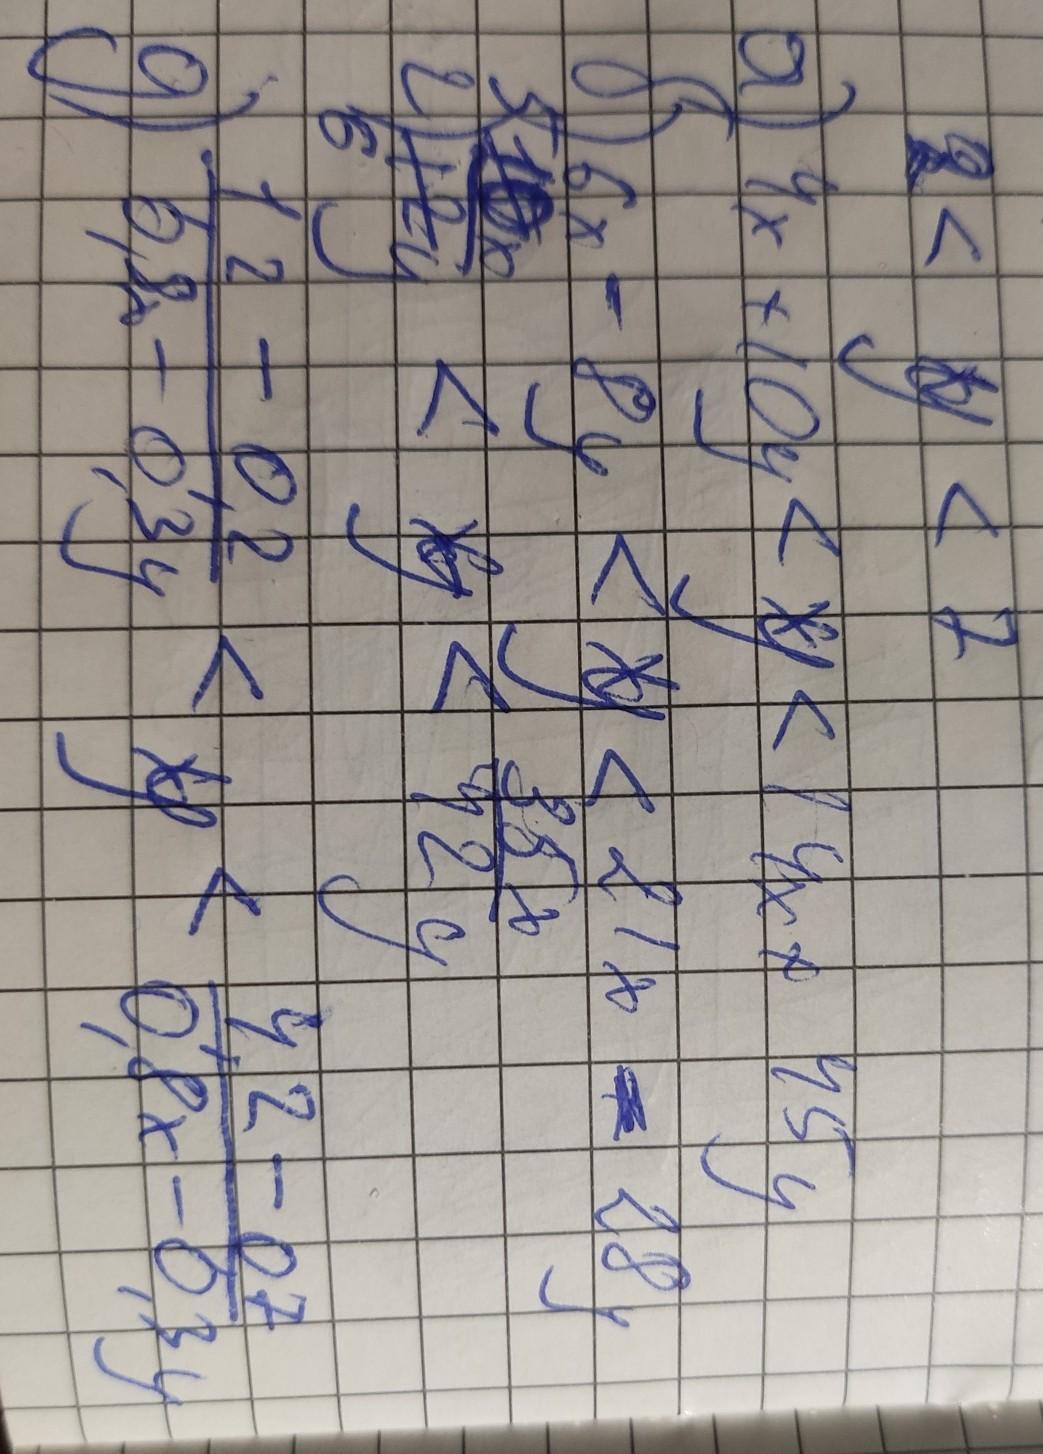 2 < y < 7
а) 4x + 10y < xy < 14x + 45y
б) 6x - 8y < xy < 21x - 28y
в) 5x/6y < xy < 35x/42y
д) 12 - 0,2/0,8x - 0,3y < xy < 42 - 0,7/0,8x - 0,3y